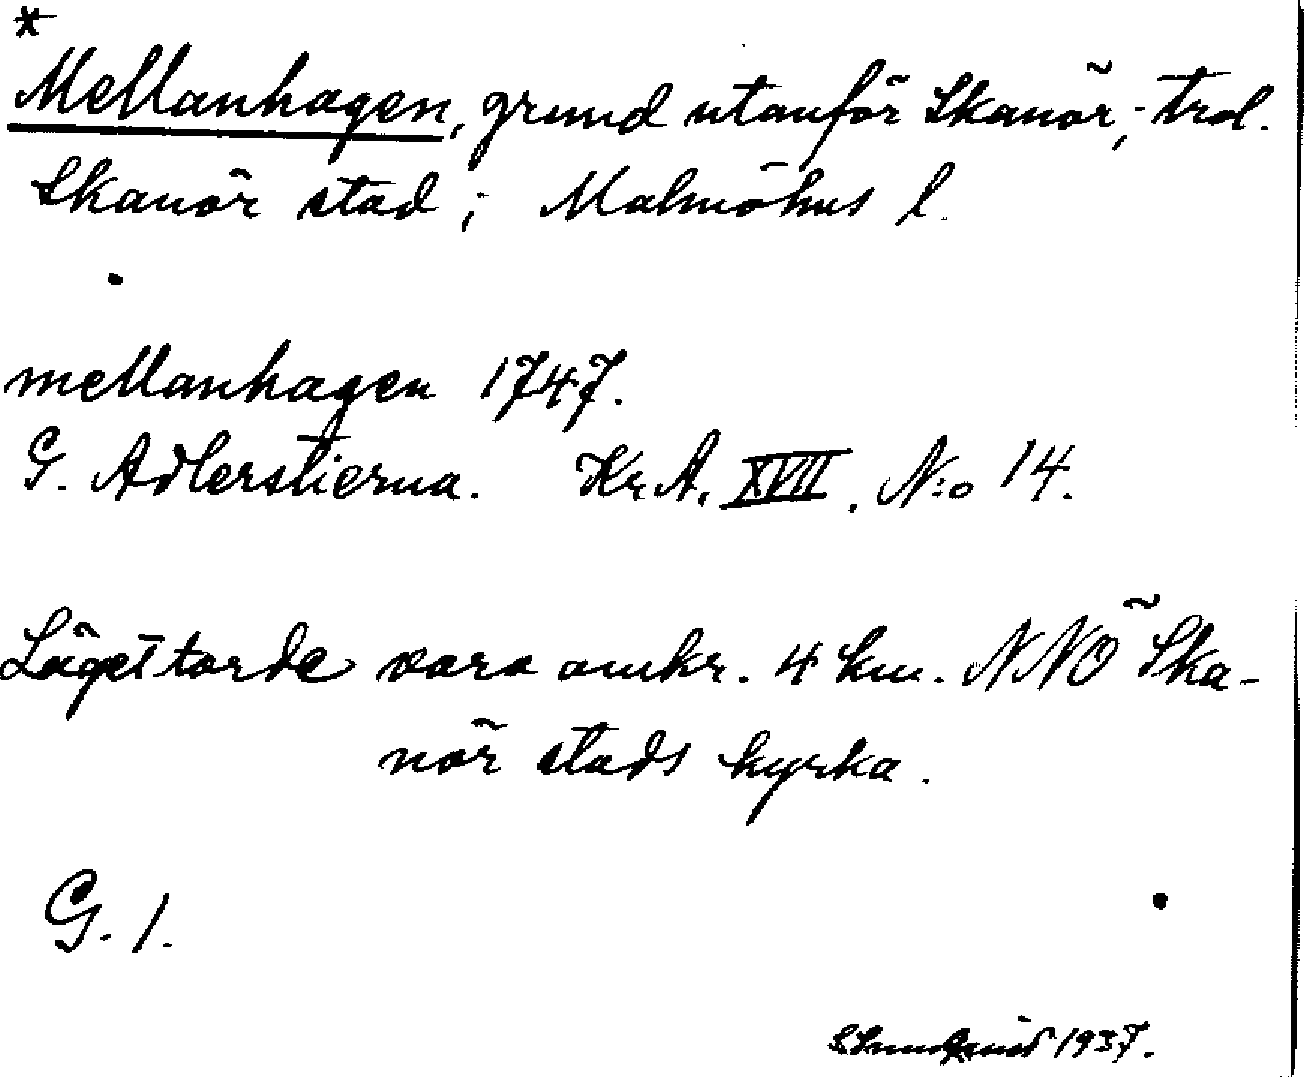 *
Mellanhagen, grund utanför Skanör, trol.
Skanör stad; Malmöhus l.
mellanhagen 1747.
G. Adlerstierna. Kr. A. XVII. N:o 14.
Läget torde vara omkr. 4 km. NNO Ska-
nör stads kyrka.
G. 1.
1937.